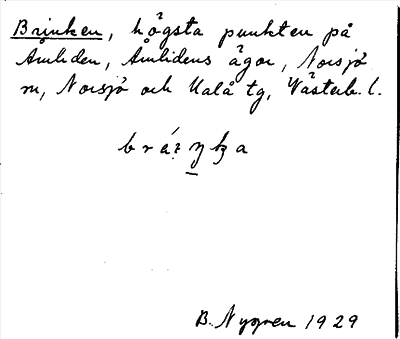 Brinken, högsta punkten på
Åmliden, Åmlidens ägor, Norsjö
sn, Norsjö och Malå tg, Västerb. l.
B. Nygren 1929